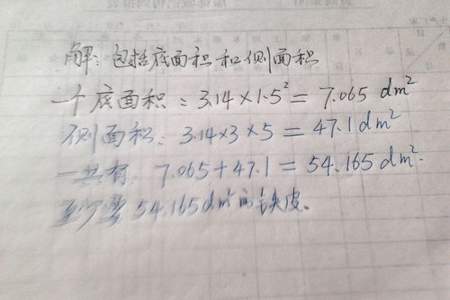 解：包括底面积和侧面积
一个底面积：3.14×1.5²=7.065 dm²
侧面积：3.14×3×5=47.1dm²
一共有：7.065+47.1=54.165dm².
至少要54.165dm²的铁皮。